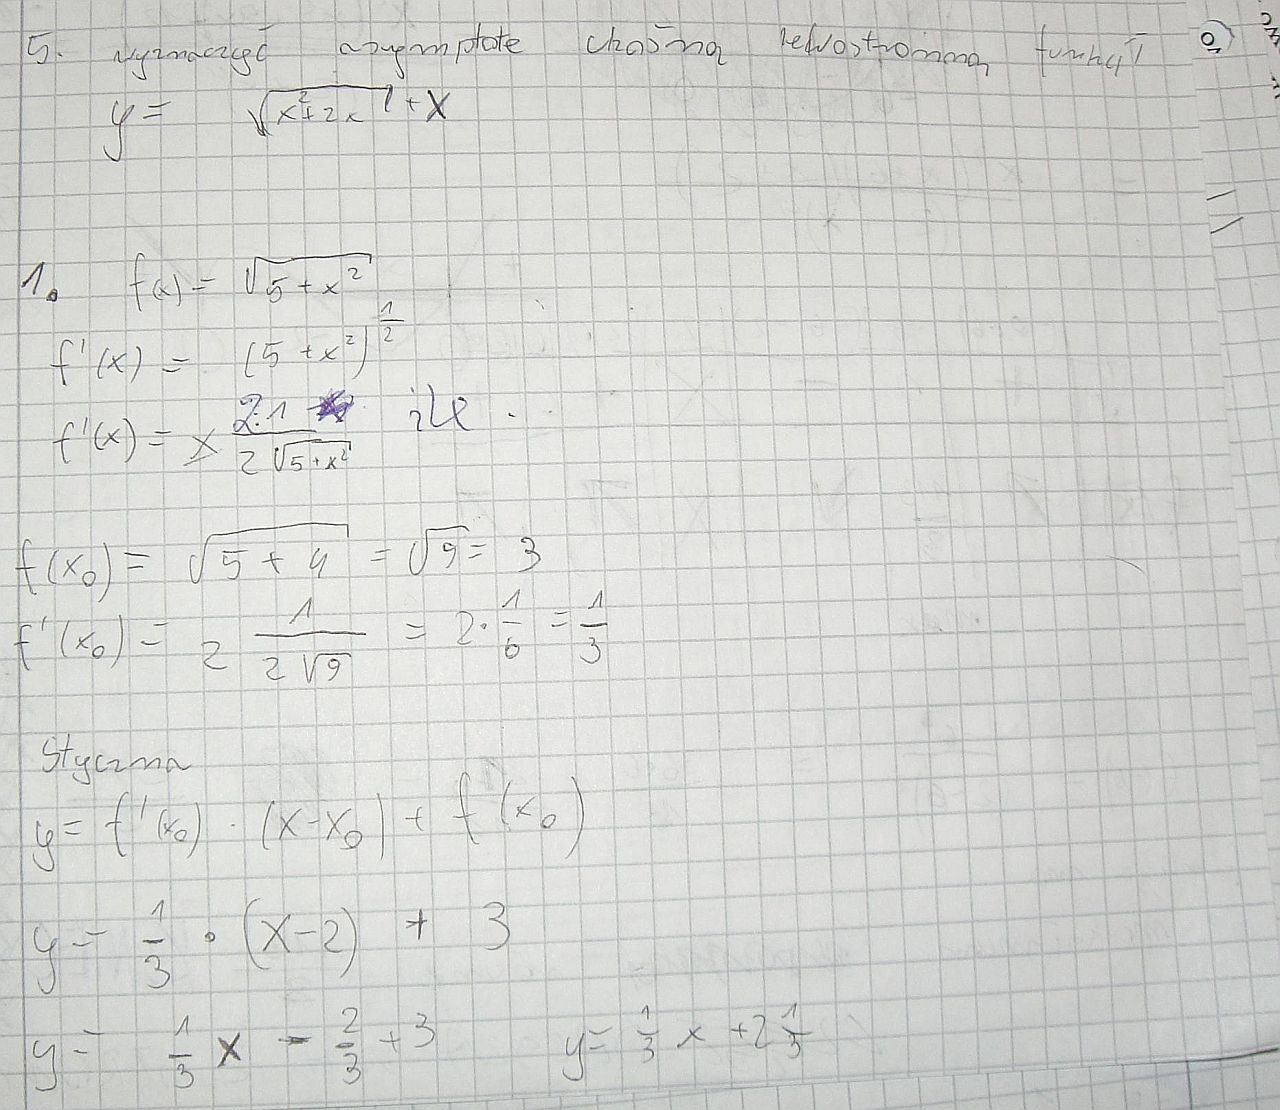 5. wyznaczyć asymptote ukośną lewostronną funkcji
y = √(x²+2x) + x
1. f(x) = √(5 + x²)
f'(x) = (5 + x²)^(1/2)
f'(x) = x 2·1 / (2√(5+x²)) ile
f(x₀) = √(5 + 4) = √9 = 3
f'(x₀) = 2 1/(2√9) = 2 · 1/6 = 1/3
Styczna
y = f'(x₀) · (x-x₀) + f(x₀)
y = 1/3 · (x-2) + 3
y = 1/3 x - 2/3 + 3 y = 1/3 x + 2 1/3